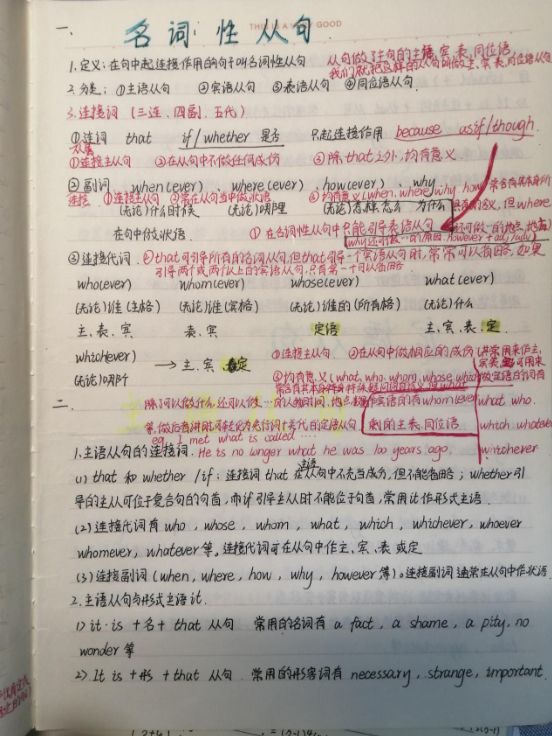 THIS IS A VERY GOOD
一. 名词性从句
1.定义:在句中起连接作用的句子叫名词性从句 从句做了主句的主语,宾,表,同位语,
我们就把这样的从句叫做主,宾,表,同位语从句
2.分类:①主语从句 ②宾语从句 ③表语从句 ④同位语从句.
3.连接词(三连、四副、五代)
①连词 that if/whether 是否 只起连接作用 because as if/though
①连接主从句 ②在从句中不做任何成份 ③除that之外,均有意义
②副词 when(ever)、where(ever)、how(ever)、why
连接 ①连接主从句 ②常在从句当中做状语 ③均有意义(when, where, why, how
(无论)什么时候 (无论)哪里 (无论)怎样,怎么 为什么 但where
在句中做状语. ①在名词性从句中只能引导表语从句 还可做
why还可做 的原因, however+adj/adv
③连接代词. ②that引导所有的名词从句,但that引导一个宾语从句时,常常可以省略,如果
引导两个或两个以上的宾语从句,只有第一个可以省略
who(ever) whom(ever) whose(ever) what(ever)
(无论)谁(主格) (无论)谁(宾格) (无论)谁的(所有格) (无论)什么
主、表、宾 表、宾 定语 主、宾、表、定
which(ever) → 主、宾、表定 ①连接主从句 ②在从句中做相应的成份
(无论)哪个 ③均有意义(what, who, whom, whose, which
二. 除可以做什么,还可以做…的人物,时间,地点 宾语的有whom(ever) what, who.
等,做后者讲时 先行词+关代的定语从句 剩的主,表,同位语 which, whatever
eg. I met what is called …. whichever
1.主语从句的连接词. He is no longer what he was 100 years ago,
(1) that 和 whether/if:连接词 that 在主语从句中不充当成分,但不能省略;whether引
导的主从可位于复合句的句首,而if引导主从时不能位于句首,常用it作形式主语.
(2)连接代词有 who,whose,whom,what,which,whichever,whoever
whomever,whatever 等。连接代词可在从句中作主、宾、表或定
(3)连接副词(when,where,how,why,however等)。连接副词通常在从句中作状语
2.主语从句与形式主语it.
1) it is +名+ that 从句 常用的名词有 a fact,a shame,a pity, no
wonder 等
2) It is +形+ that 从句 常用的形容词有 necessary,strange,important